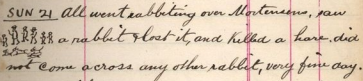 SUN 21 All went rabbiting over Mortensens, saw
a rabbit & lost it, and killed a hare. did
not come across any other rabbit, very fine day.